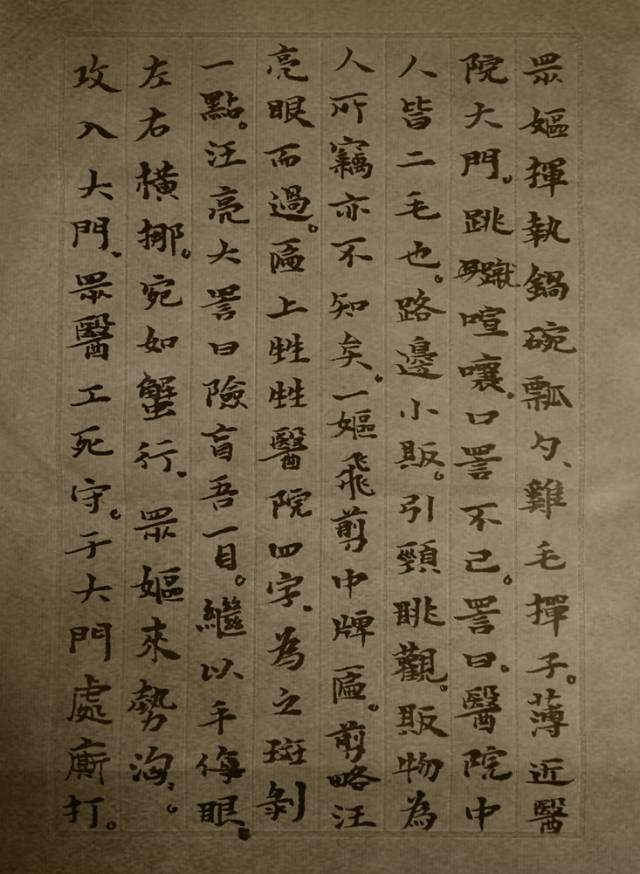 眾嫗揮執鍋碗瓢勺、雞毛撣子。薄近醫
院大門。跳躑喧嚷。口詈不已。詈曰。醫院中
人皆二毛也。路邊小販。引頸眺觀。販物為
人所竊亦不知矣。一嫗飛剪中牌匾。剪略汪
亮眼而過。匾上甡甡醫院四字、為之斑剝
一點。汪亮大詈曰險盲吾一目。繼以手侮眼。
左右橫挪。宛如蟹行、眾嫗來勢洶、。
攻入大門、眾醫工死守。于大門處廝打。